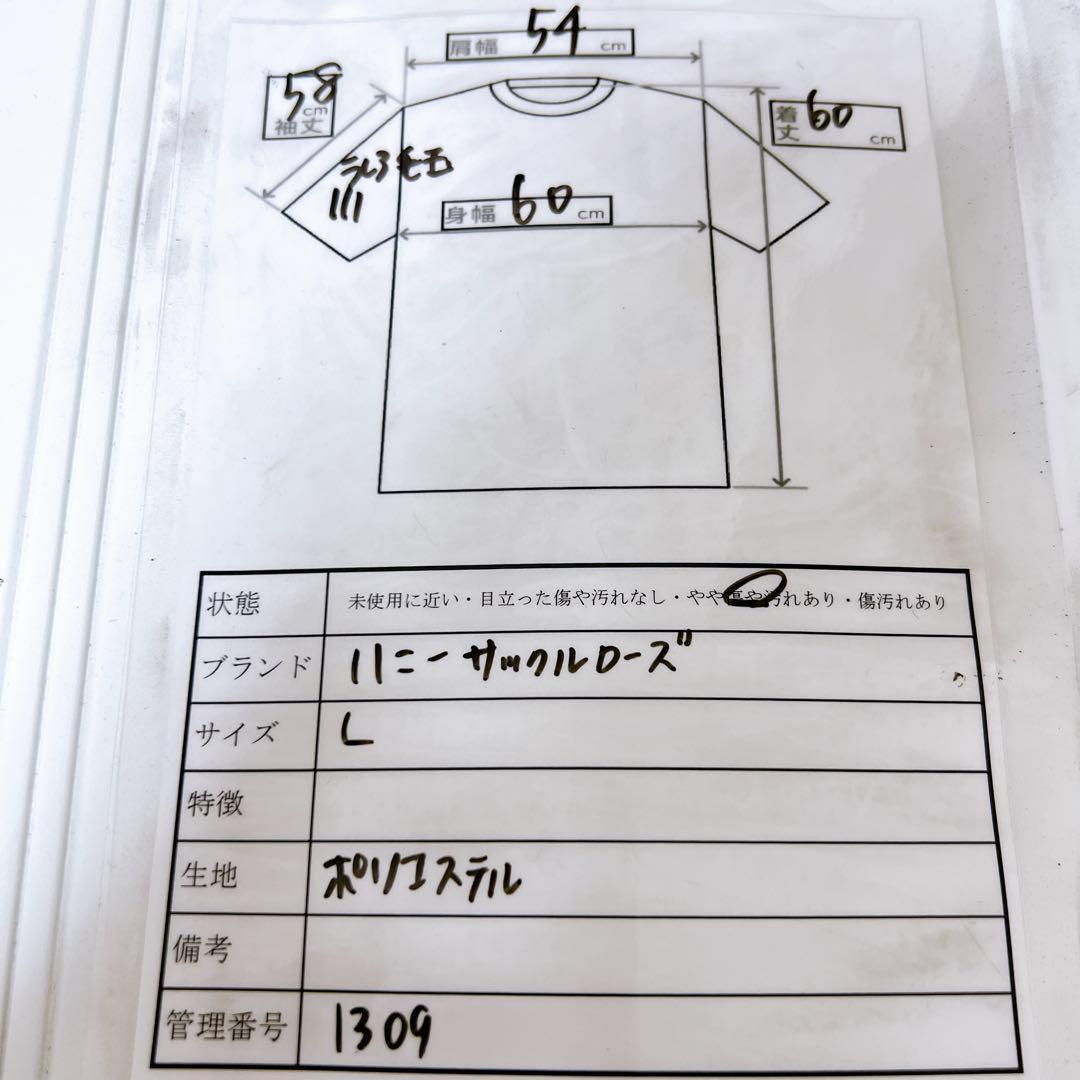 肩幅 54 cm
58 cm
袖丈
着丈 60 cm
毛玉
身幅 60 cm
状態 未使用に近い・目立った傷や汚れなし・やや傷や汚れあり・傷汚れあり
ブランド ハニーサックルローズ
サイズ L
特徴
生地 ポリエステル
備考
管理番号 1309